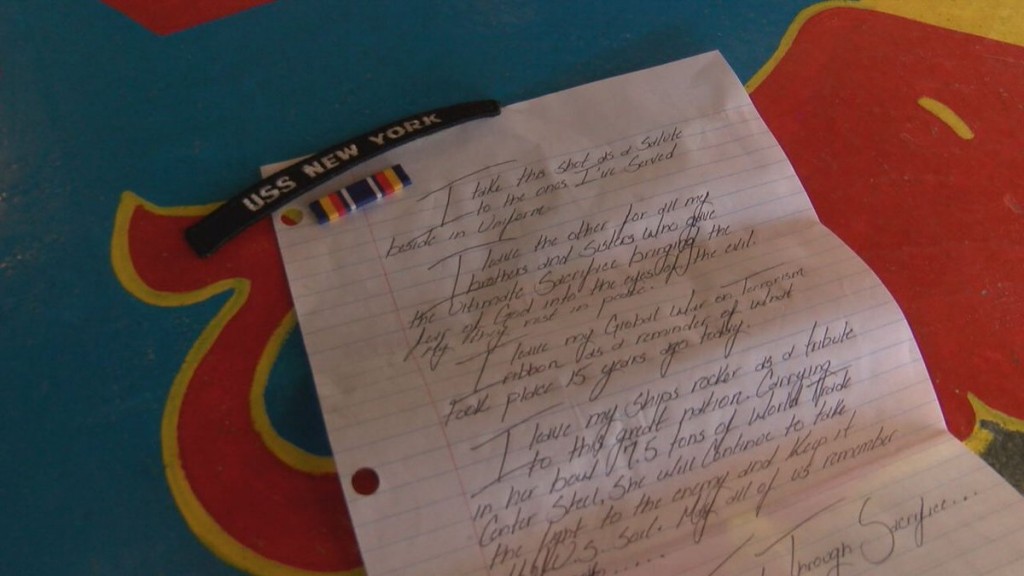 USS NEW YORK
I take this shot as a Salute
to the ones I've Served
beside in Uniform.
I leave the other for all my
brothers and Sisters who gave
the Ultimate Sacrifice bringing the
fury of God into the eyes of the evil.
May they rest in peace.
I leave my Global War on Terrorism
ribbon as a reminder of what
Took place 15 years ago today.
I leave my ships rocker as a tribute
to this great nation. Carrying
in her bow 7.5 tons of World Trade
Center Steel. She will Continue to take
the fight to the enemy and Keep it
off U.S. Soil. May all of us remember
Through Sacrifice...